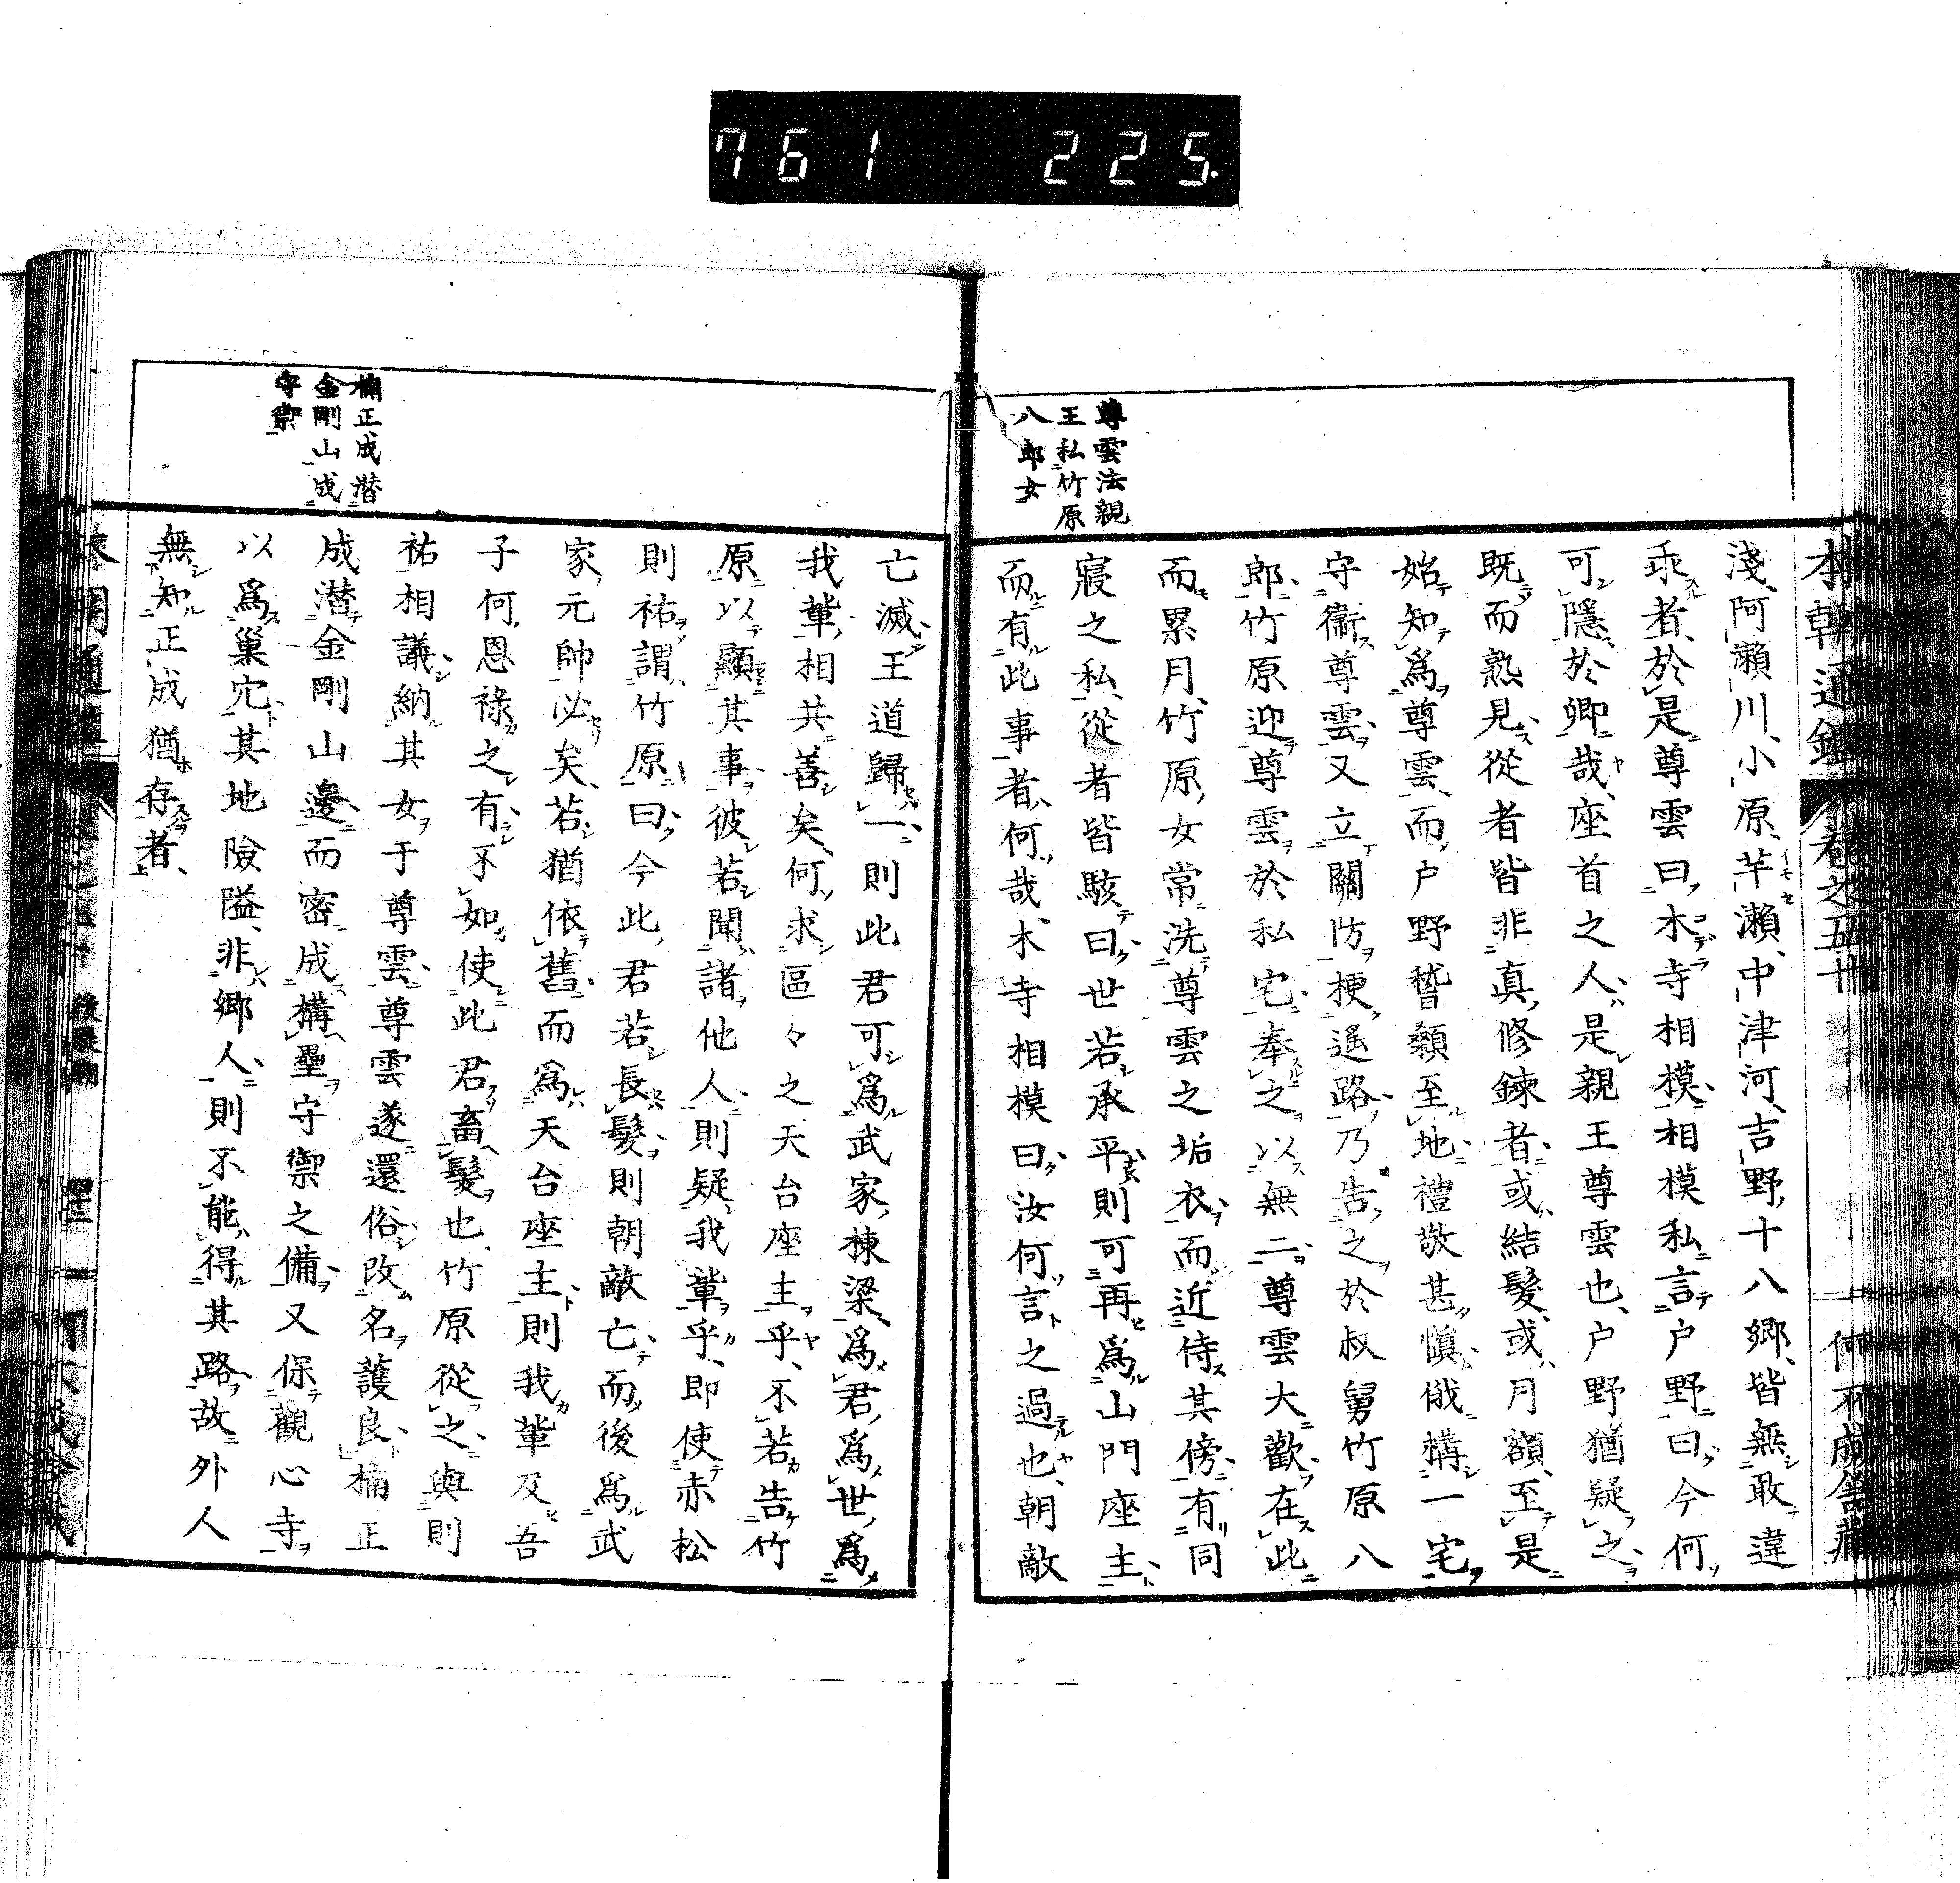 761 225.
本朝通鑑 卷之五十 何不成舎蔵
尊雲法親
王私竹原
八郎女
淺、阿瀨川、小原、芋瀨、中津河、吉野、十八郷、皆無敢違
乖者、於是尊雲曰、木寺相摸、相模私言戸野曰、今何
可隱於卿哉、座首之人、是親王尊雲也、戸野猶疑之、
既而熟見從者皆非真修鍊者、或結髮、或月額、至是
始知爲尊雲、而戸野稽顙至地、禮敬甚愼、俄構一宅
守衞尊雲、又立關防、梗遙路、乃告之於叔舅竹原八
郎、竹原迎尊雲於私宅、奉之以無二、尊雲大歡、在此
而累月、竹原女常洗尊雲之垢衣、而近侍其傍、有同
寢之私、從者皆駭曰、世若承平則可再爲山門座主、
而有此事者、何哉、木寺相模曰、汝何言之過也、朝敵
亡滅、王道歸一、則此君可爲武家棟梁、爲君、爲世、爲
我輩、相共善矣、何求區々之天台座主乎、不若告竹
原以顯其事、彼若聞諸他人、則疑我輩乎、即使赤松
則祐謂竹原曰、今此君若長髮、則朝敵亡而後爲武
家元帥必矣、若猶依舊而爲天台座主、則我輩及吾
子何恩祿之有、不如使此君畜髮也、竹原從之、與則
祐相議、納其女于尊雲、尊雲遂還俗、改名護良、楠正
成潜金剛山邊、而密成構壘守禦之備、又保觀心寺
以爲巢穴、其地險隘、非郷人則不能得其路、故外人
無知正成猶存者、
楠正成潜
金剛山成
守禦